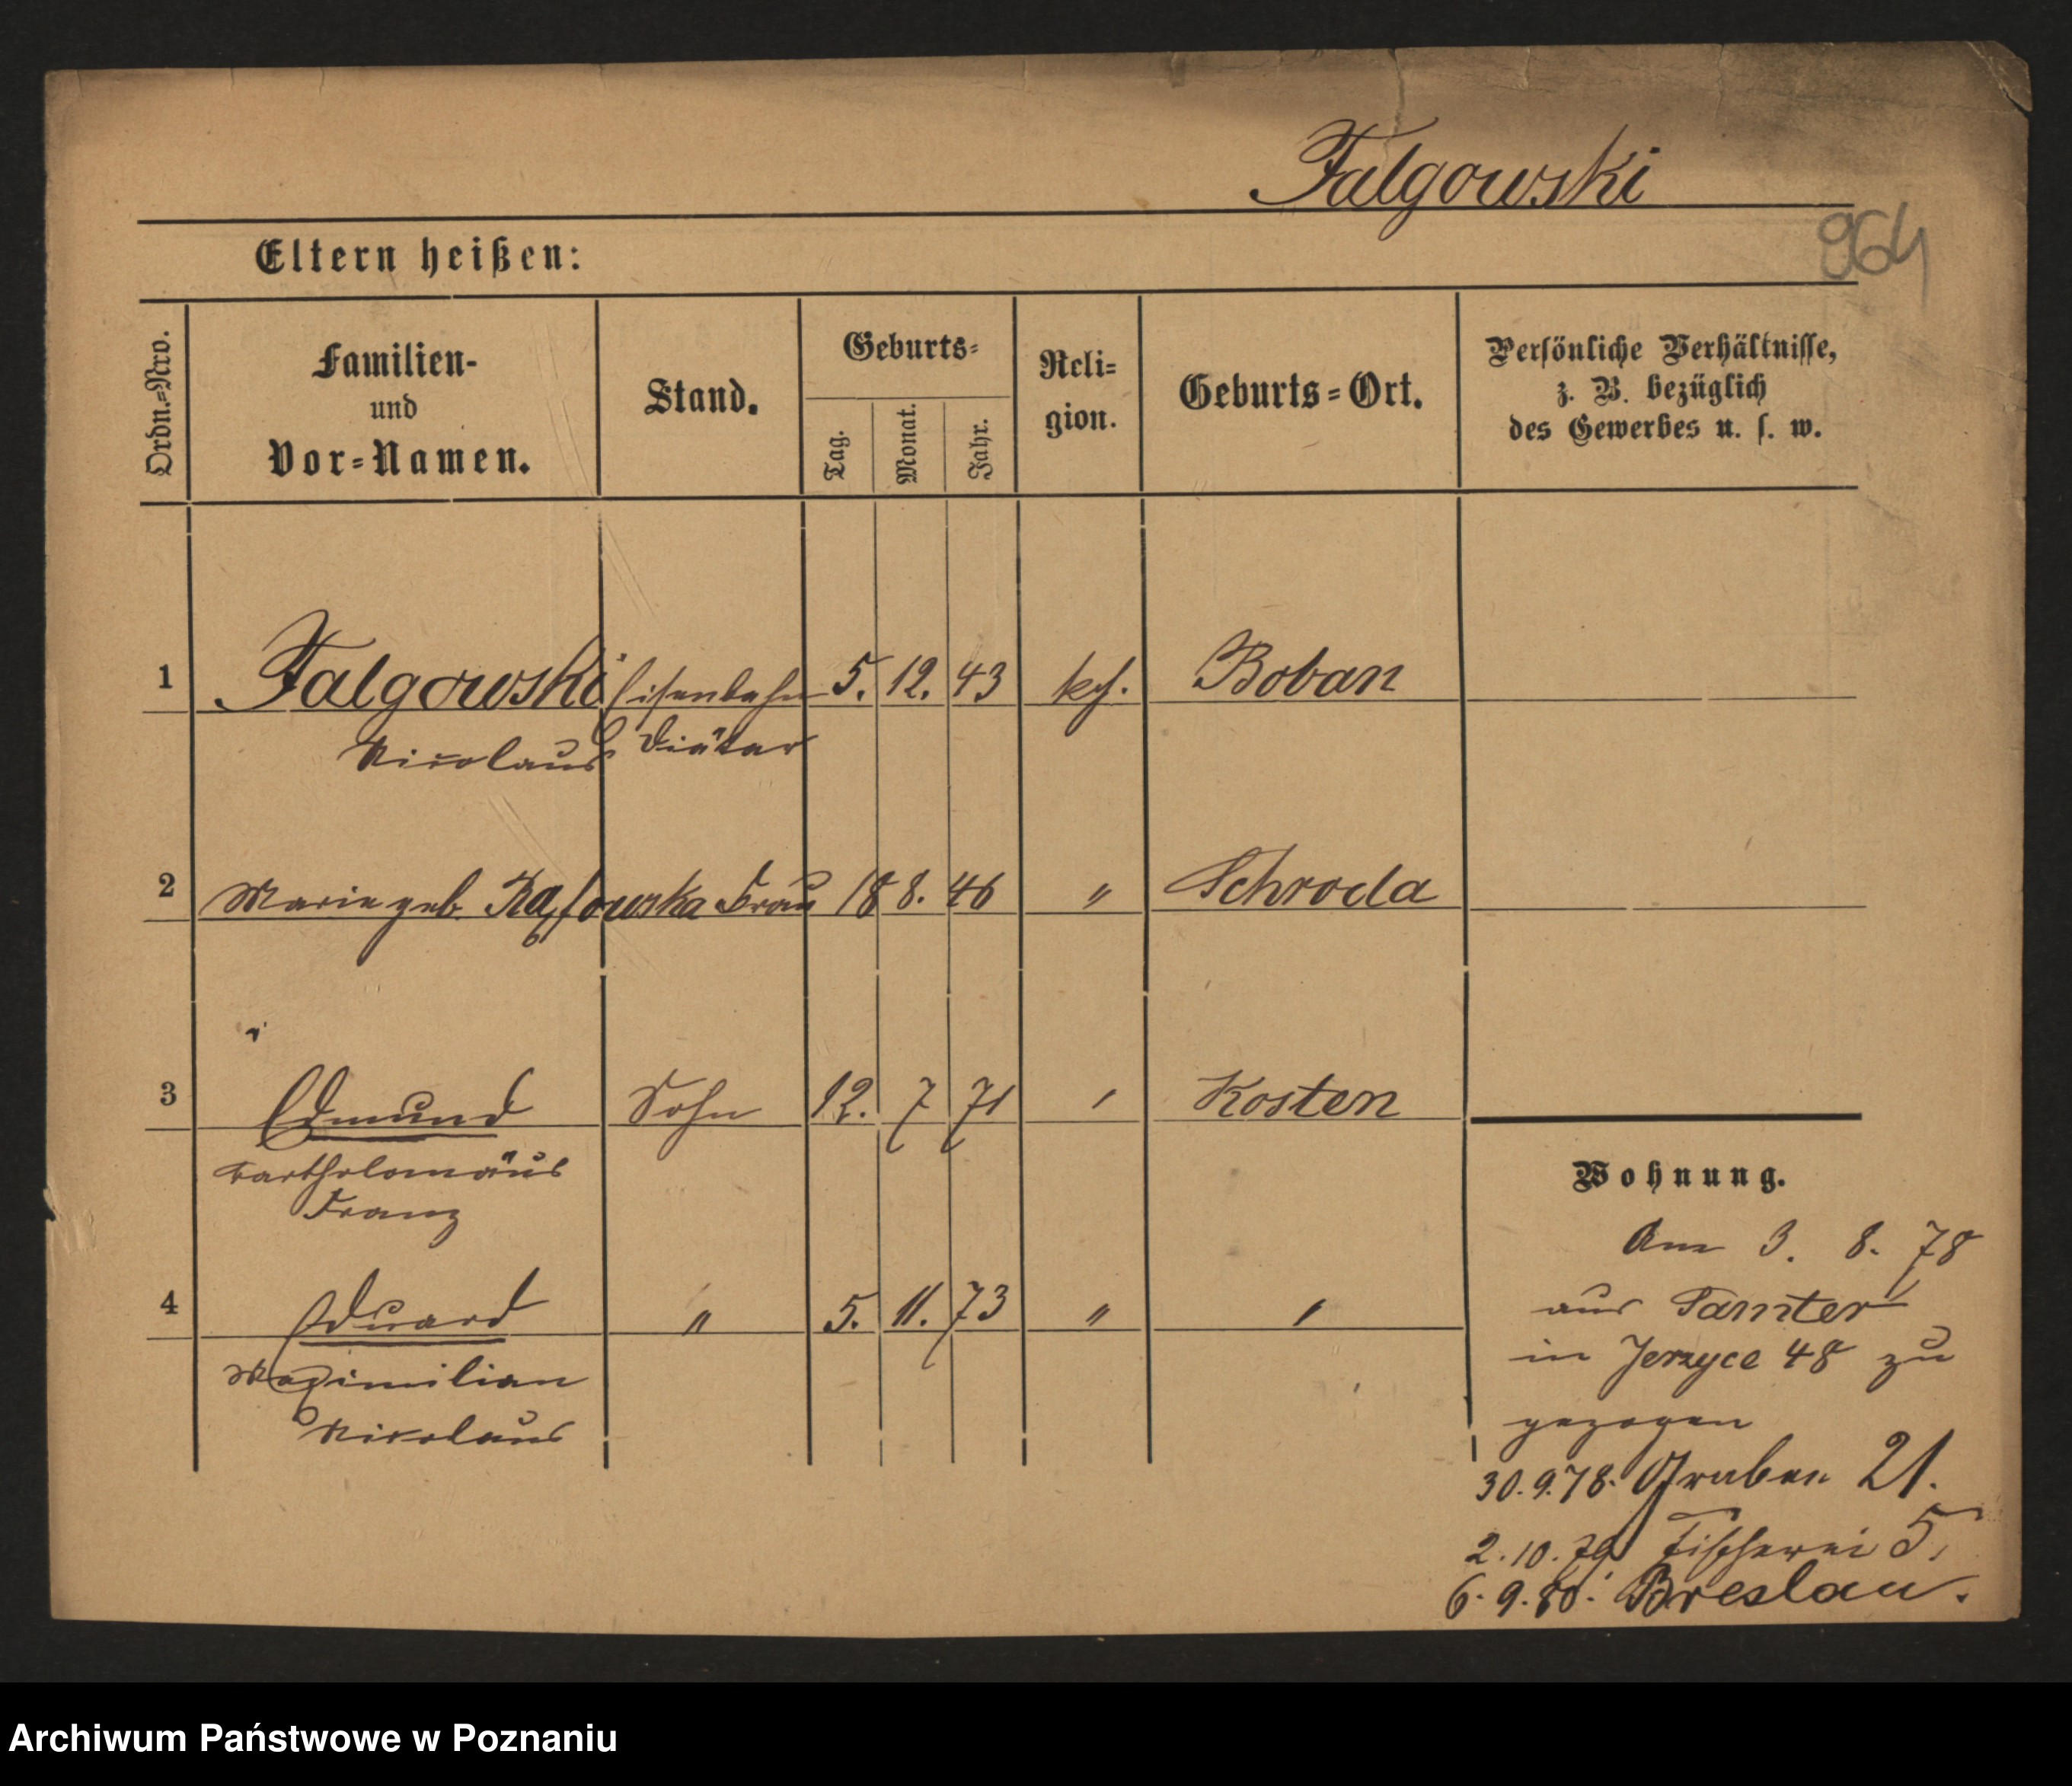 Falgowski
964
Eltern heißen:
Ordn.=Nro.
Familien-
und
Vor=Namen.
Stand.
Geburts=
Tag.
Monat.
Jahr.
Reli=
gion.
Geburts=Ort.
Persönliche Verhältnisse,
z. B. bezüglich
des Gewerbes u. s. w.
1 Falgowski Eisenbahn 5. 12. 43 kth. Boban
Nicolaus Diätar
2 Marie geb. Frau 18 8. 46 " Schroda
3 Edmund Sohn 12. 7 71 ' Kosten
Bartholomäus
Franz
4 Eduard " 5. 11. 73 " '
Maximilian
Nikolaus
Wohnung.
Am 3. 8. 78
aus Samter
in Jerzyce 48 zu
gezogen
30.9.78. Graben 21.
2.10.79 Fischerei 5,
6.9.80. Breslau.
Archiwum Państwowe w Poznaniu